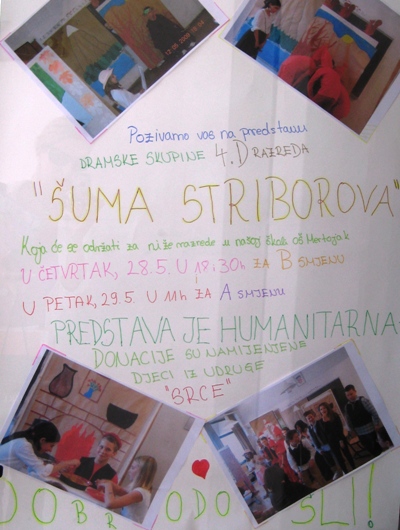 Pozivamo vas na predstavu
DRAMSKE SKUPINE 4.D RAZREDA
"ŠUMA STRIBOROVA"
Koja će se održati za niže razrede u našoj školi OŠ Mertojak
U ČETVRTAK, 28.5. U 18:30h ZA B SMJENU
I
U PETAK, 29.5. U 11h ZA A SMJENU
PREDSTAVA JE HUMANITARNA
DONACIJE SU NAMIJENJENE
DJECI IZ UDRUGE
"SRCE"
DOBRODOŠLI!